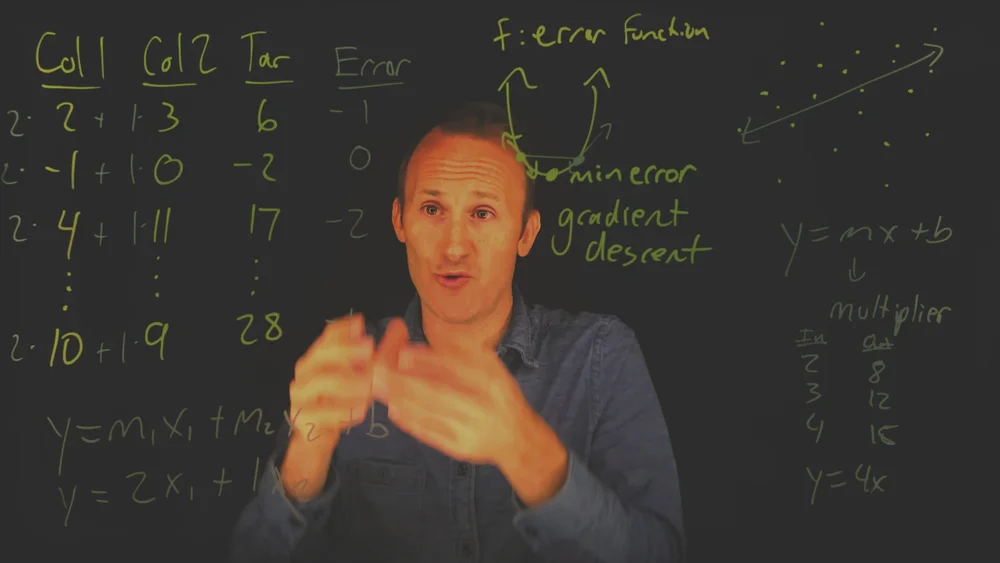 Col 1 Col 2 Tar Error
2· 2 + 1· 3 6 -1
2· -1 + 1· 0 -2 0
2· 4 + 1· 11 17 -2
2· 10 + 1· 9 28
y = m₁x₁ + m₂x₂ + b
y = 2x₁ + 1x₂
f: error function
min error
gradient
descent
y = mx + b
↓
multiplier
In Out
2 8
3 12
4 16
y = 4x